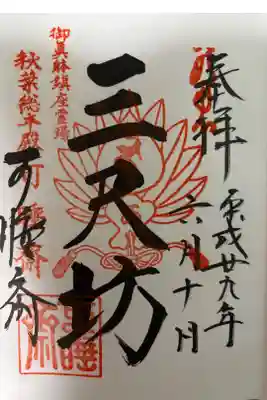 奉拝
平成廿九年
六月十日
三尺坊
御真躰鎮座霊場
秋葉総本殿
可睡斎